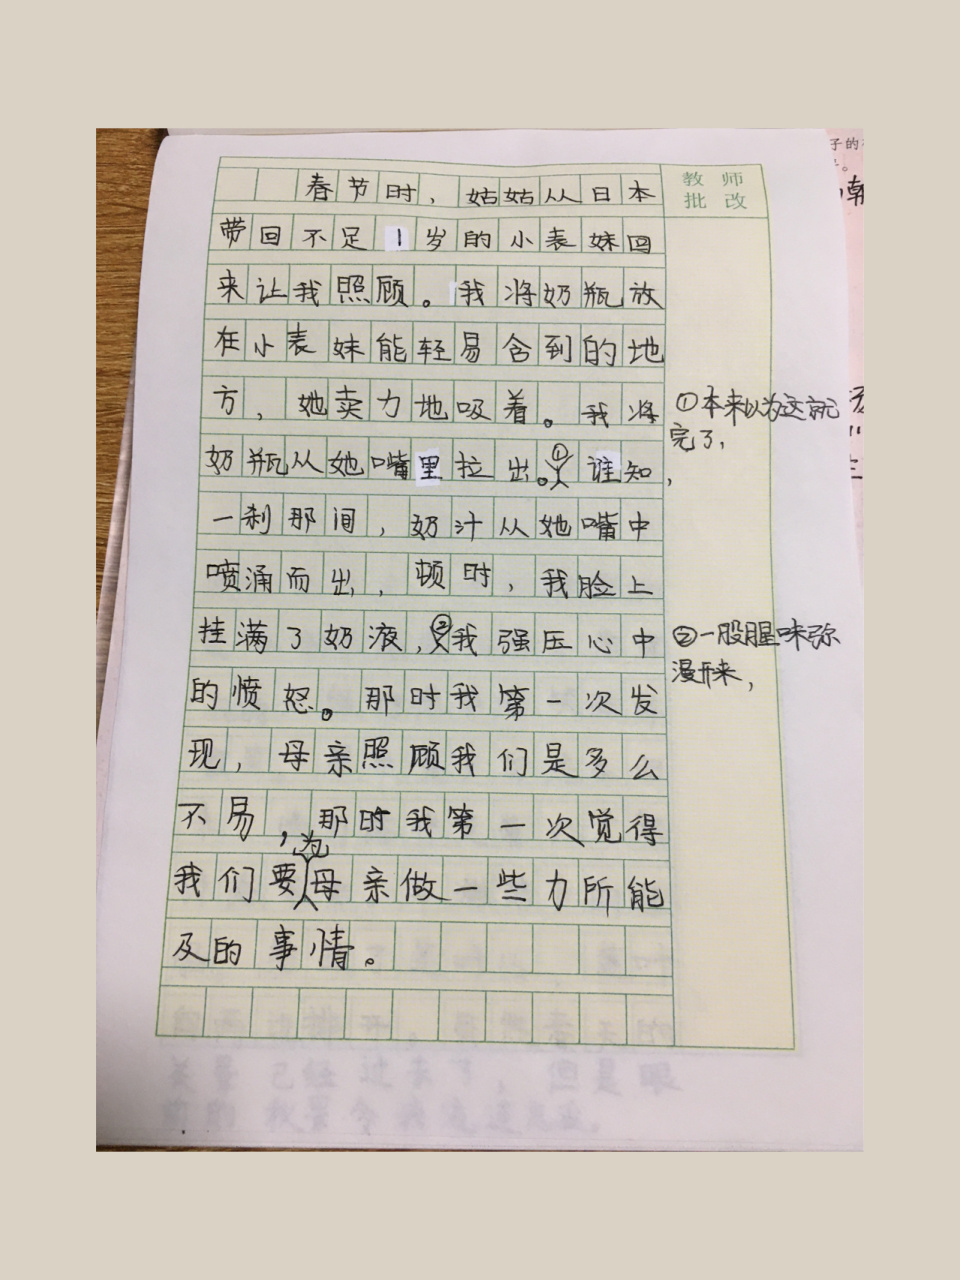 春节时，姑姑从日本
带回不足1岁的小表妹回
来让我照顾。我将奶瓶放
在小表妹能轻易含到的地
方，她卖力地吸着。我将
奶瓶从她嘴里拉出。①谁知，
一刹那间，奶汁从她嘴中
喷涌而出，顿时，我脸上
挂满了奶液，②我强压心中
的愤怒。那时我第一次发
现，母亲照顾我们是多么
不易，那时我第一次觉得
为
我们要母亲做一些力所能
及的事情。
教师
批改
①本来以为这就
完了，
②一股腥味弥
漫开来，
子的